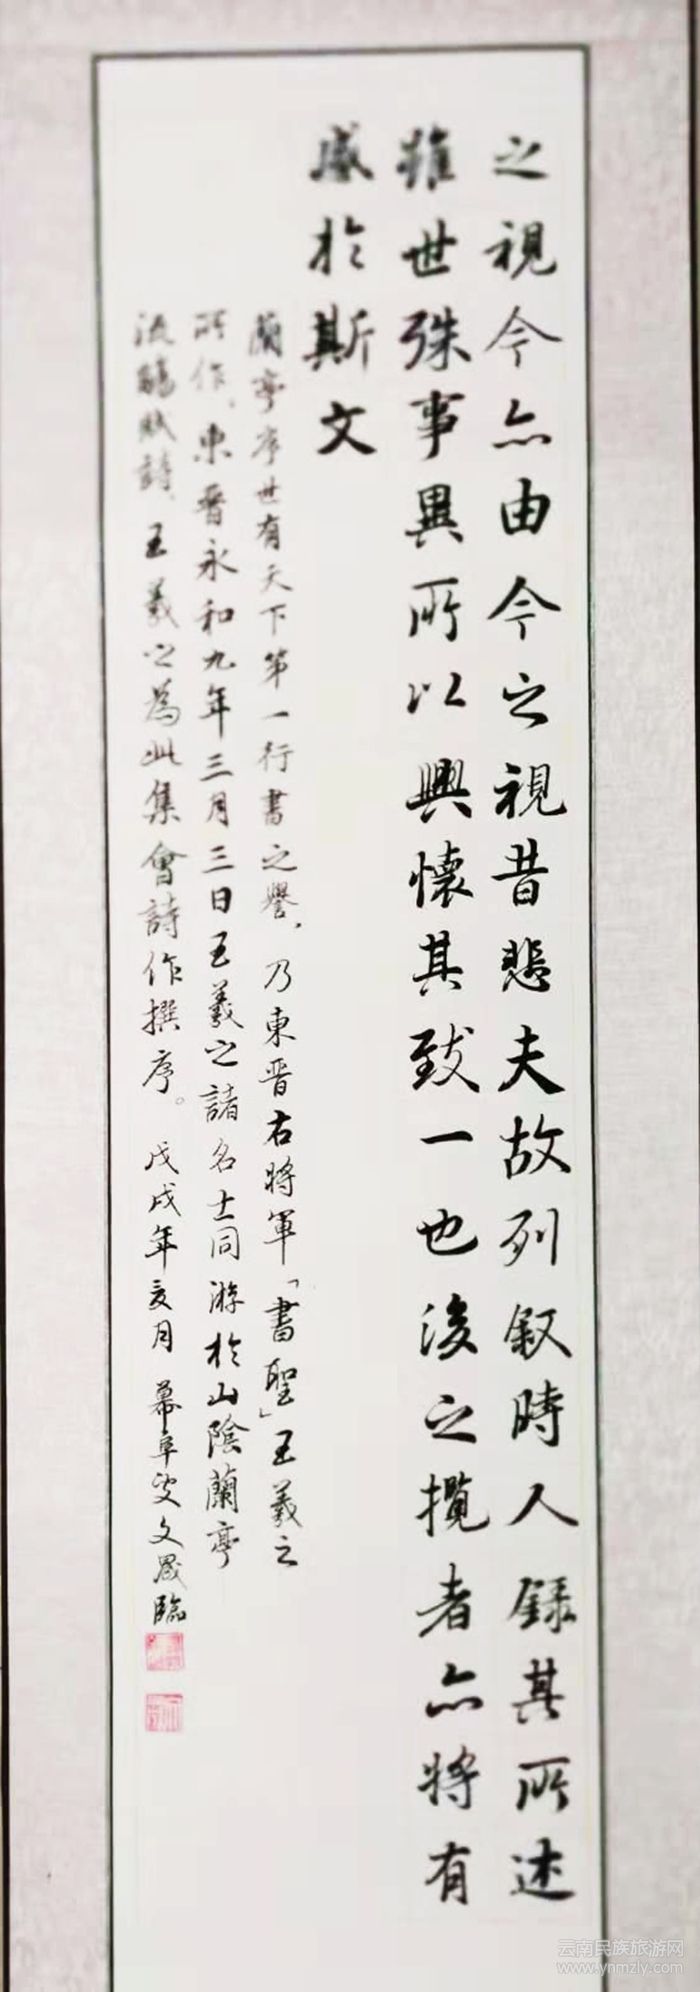 之視今亦由今之視昔悲夫故列叙時人錄其所述
雖世殊事異所以興懷其致一也後之攬者亦將有
感於斯文
蘭亭序世有天下第一行書之譽，乃東晉右將軍「書聖」王羲之
所作，東晉永和九年三月三日王羲之諸名士同游於山陰蘭亭
流觴賦詩，王羲之為此集會詩作撰序。戊戌年亥月 幕阜叟文晟臨
云南民族旅游网
www.ynmzly.com